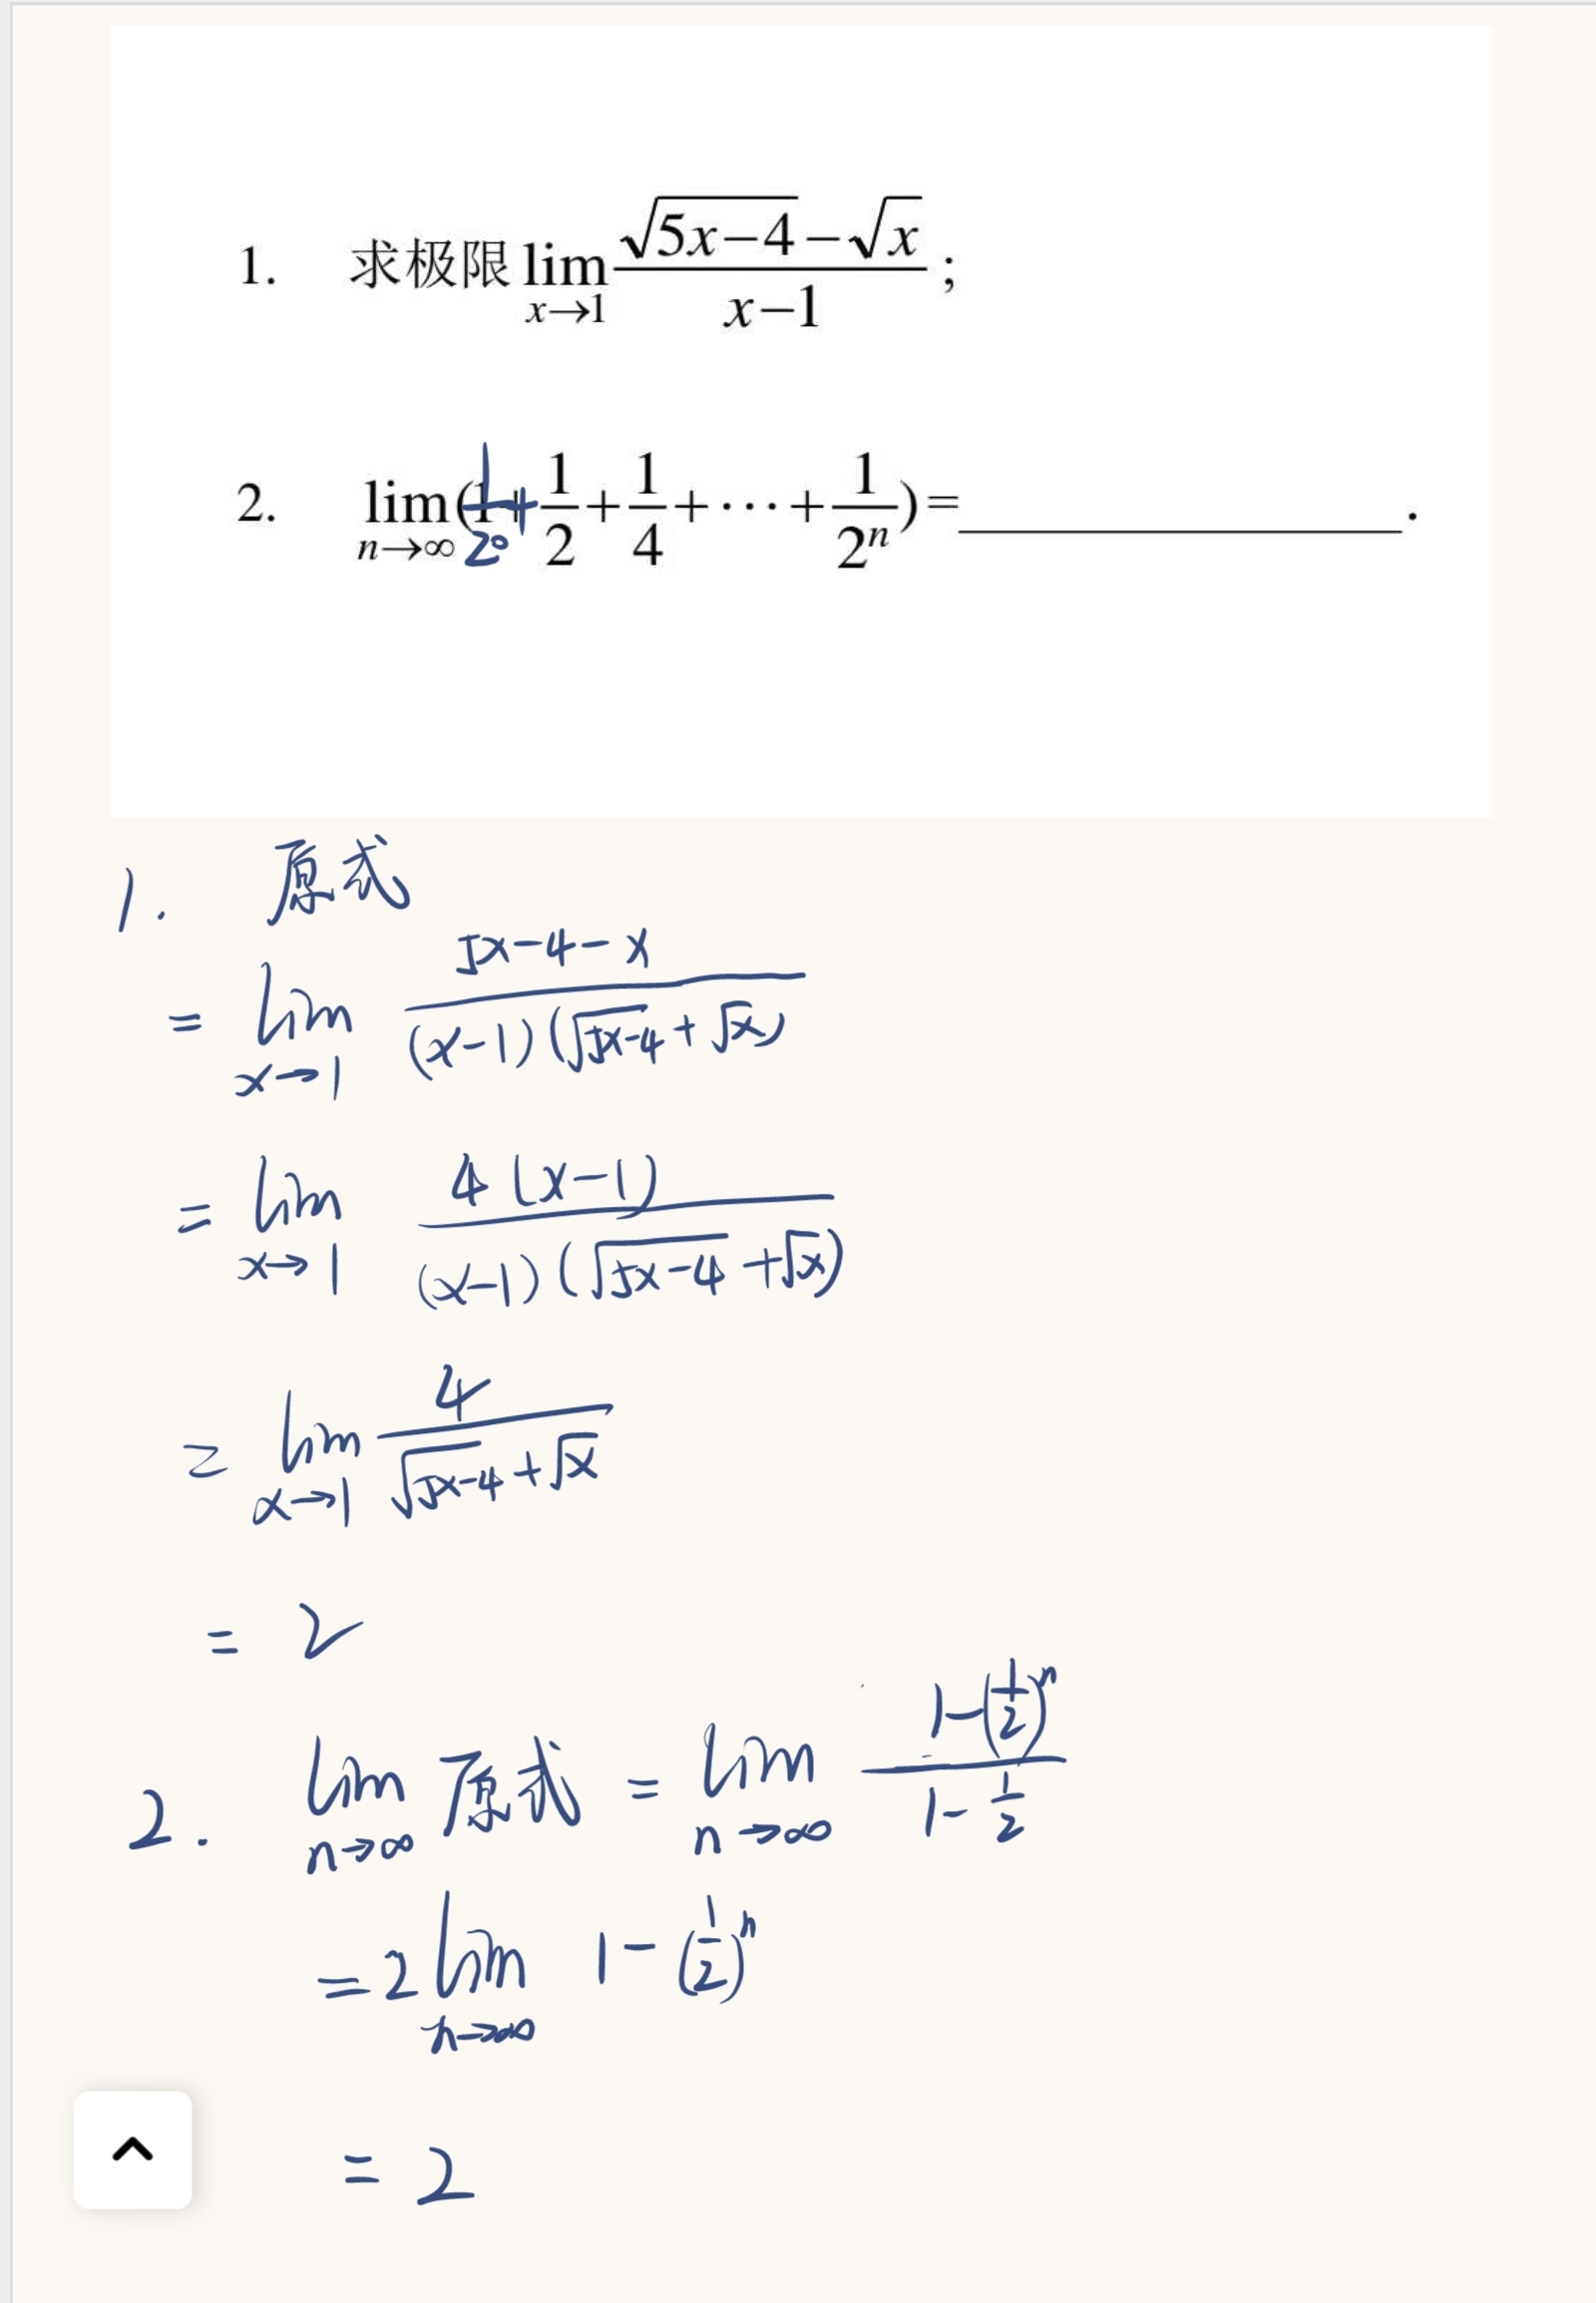 1. 求极限 lim_{x→1} (√(5x−4) − √x)/(x−1) ;
2. lim_{n→∞} (1/2⁰ + 1/2 + 1/4 + ⋯ + 1/2ⁿ) = ________ .
1. 原式
= lim_{x→1} (5x−4−x)/((x−1)(√(5x−4) + √x))
= lim_{x→1} 4(x−1)/((x−1)(√(5x−4) + √x))
= lim_{x→1} 4/(√(5x−4) + √x)
= 2
2. lim_{n→∞} 原式 = lim_{n→∞} (1−(1/2)ⁿ)/(1−1/2)
= 2 lim_{n→∞} 1−(1/2)ⁿ
= 2